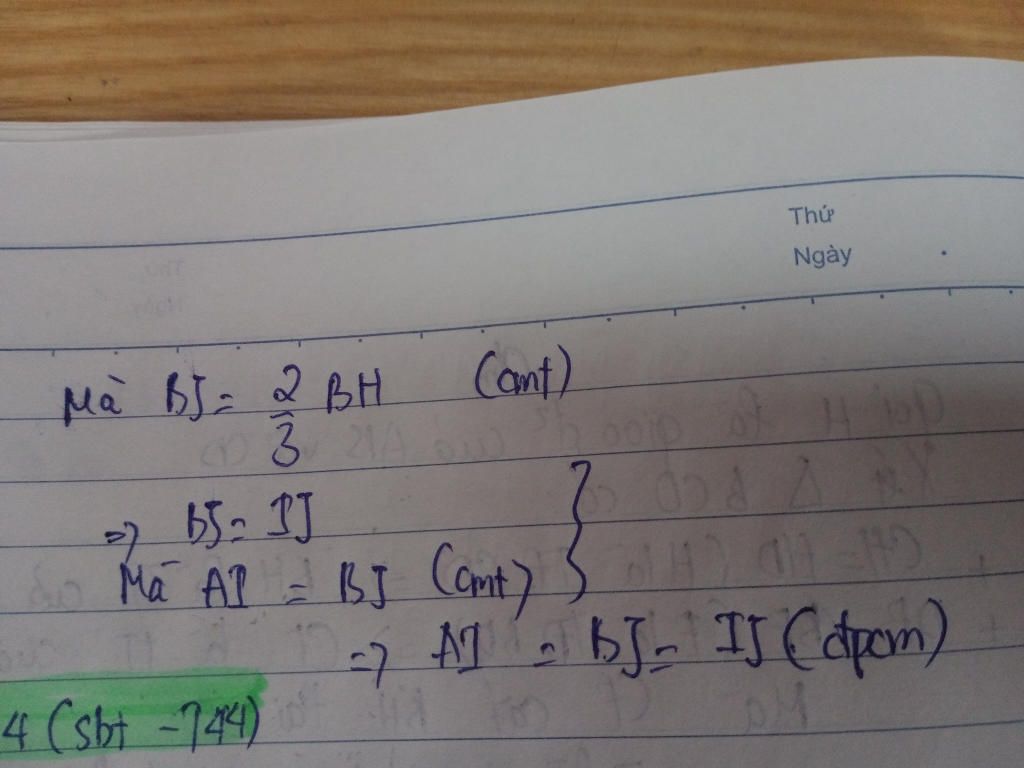 Thứ
Ngày
Mà BJ = 2/3 BH (cmt)
=> BJ = IJ
Mà AI = BJ (cmt)
=> AI = BJ = IJ (đpcm)
4 (sbt - 744)